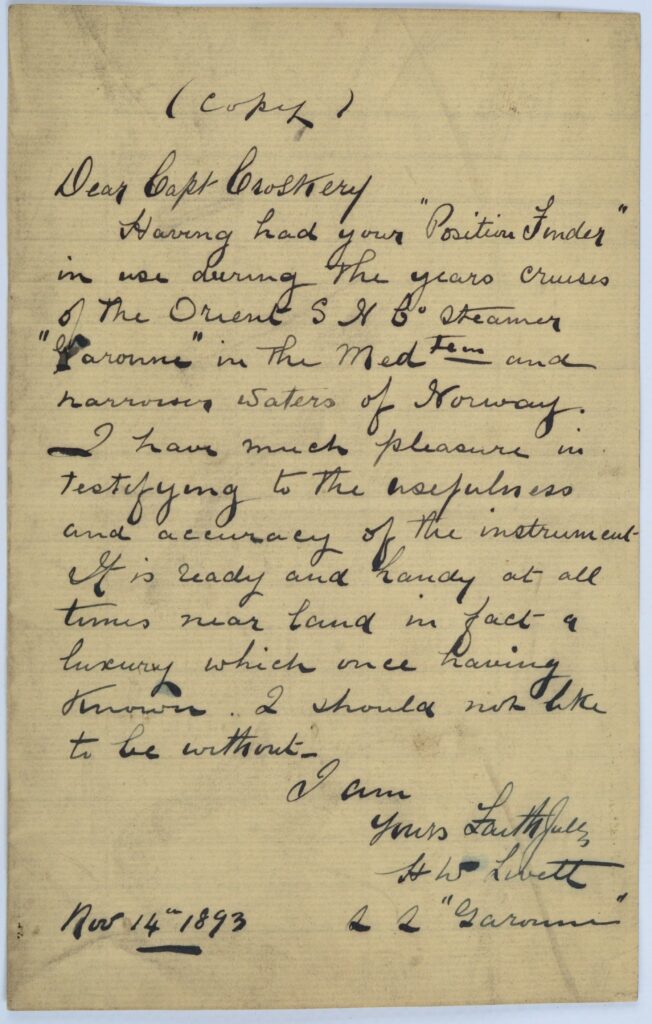 (Copy)
Dear Capt Croskery
Having had your "Position Finder"
in use during the years cruises
of the Orient S N Co steamer
"Garonne" in the Med and
narrower waters of Norway.
I have much pleasure in
testifying to the usefulness
and accuracy of the instrument
It is ready and handy at all
times near land in fact a
luxury which once having
known. I should not like
to be without_
I am
Yours Faithfully
H W
S S "Garonne"
Nov 14th 1893